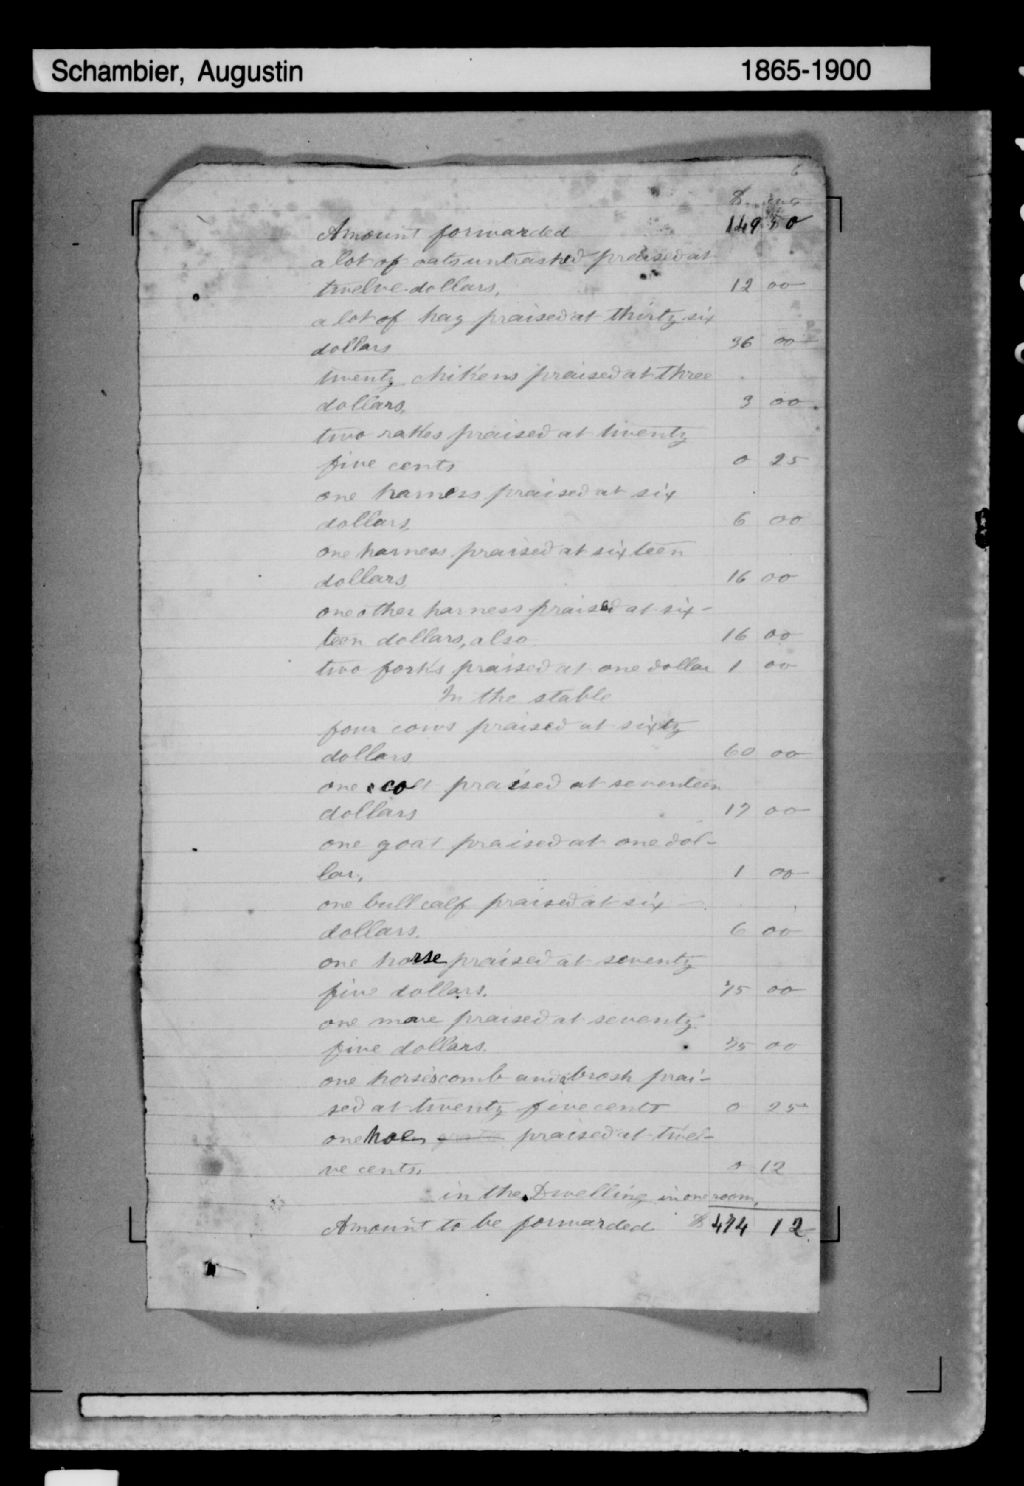 Schambier, Augustin 1865-1900
6
$
Amount forwarded 149 50
a lot of oats untrashed praised at
twelve dollars, 12 00
a lot of hay praised at thirty six
dollars 36 00
twenty chikens praised at three
dollars. 3 00
two rakes praised at twenty
five cents 0 25
one harness praised at six
dollars 6 00
one harness praised at sixteen
dollars 16 00
one other harness praised at six-
teen dollars, also 16 00
two forks praised at one dollar 1 00
In the stable
four cows praised at sixty
dollars 60 00
one colt praised at seventeen
dollars 17 00
one goat praised at one dol-
lar. 1 00
one bull calf praised at six
dollars. 6 00
one horse praised at seventy
five dollars. 75 00
one mare praised at seventy
five dollars. 75 00
one horsiscomb and brosh prai-
sed at twenty five cents 0 25
one praised at twel-
ve cents. 0 12
in the Dwelling in one room,
Amount to be forwarded $ 474 12